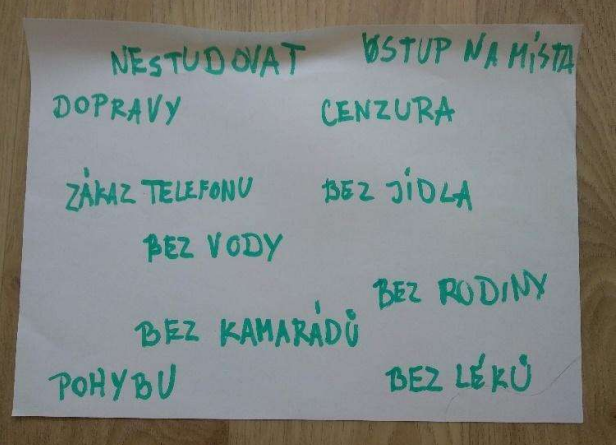 NESTUDOVAT
VSTUP NA MÍSTA
DOPRAVY
CENZURA
ZÁKAZ TELEFONU
BEZ JÍDLA
BEZ VODY
BEZ RODINY
BEZ KAMARÁDŮ
POHYBU
BEZ LÉKŮ